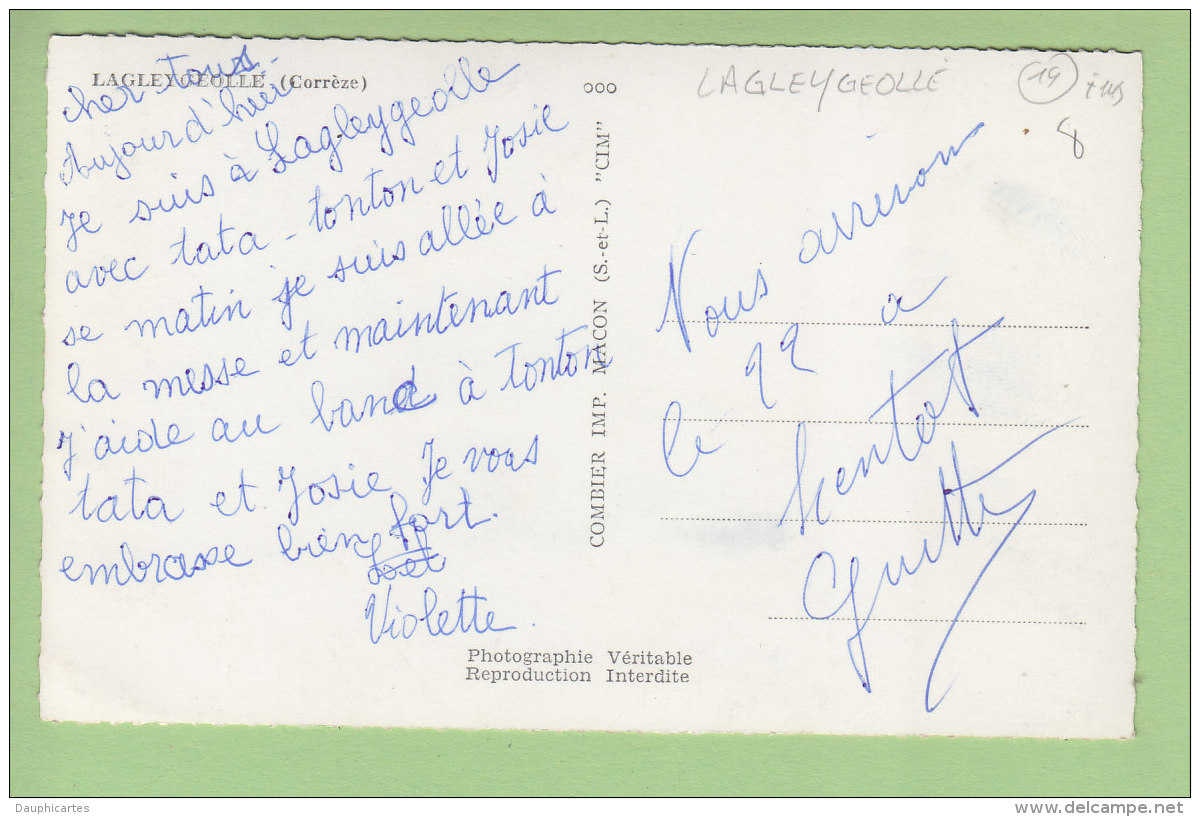 LAGLEYGEOLLE (Corrèze)
cher tous
Aujourd'hui
Je suis à Lagleygeolle
avec tata - tonton et Josie
se matin je suis allée à
la messe et maintenant
J'aide au banc à tonton
tata et Josie Je vous
embrasse bien fort.
Violette.
Photographie Véritable
Reproduction Interdite
ooo
COMBIER IMP. MACON (S.-et-L.) "CIM"
LAGLEYGEOLLE
19
8
Nous arriron
le 19 a
Guitte
Dauphicartes
delcampe.net